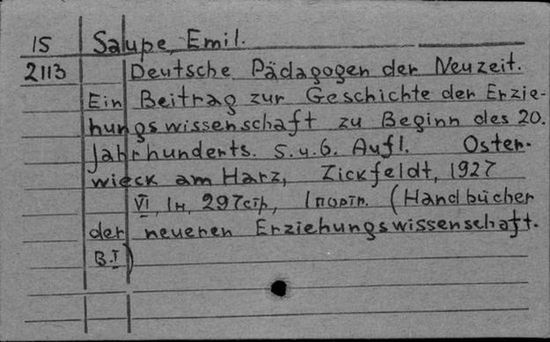 15 Salupe, Emil.
2113 Deutsche Pädagogen der Neuzeit.
Ein Beitrag zur Geschichte der Erzie-
hungswissenschaft zu Beginn des 20.
Jahrhunderts. 5.u.6. Aufl. Oster-
wieck am Harz, Zickfeldt, 1927
VI, 1н, 297стр, 1портр. (Handbücher
der neueren Erziehungswissenschaft.
B.I)